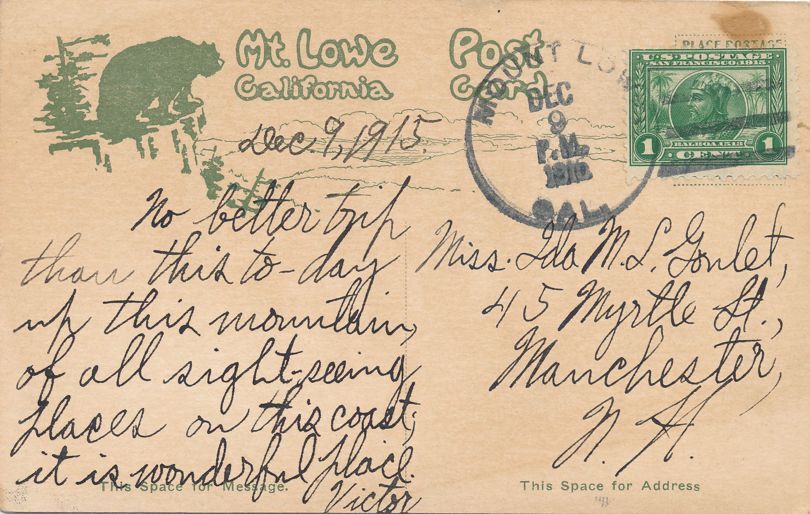 Mt. Lowe Post
California Card
PLACE POSTAGE
U.S. POSTAGE
SAN FRANCISCO 1915
BALBOA 1513
1 CENT 1
MOUNT LOWE
DEC
9
P.M.
CAL.
Dec. 9, 1915.
No better trip
than this to-day
up this mountain,
of all sight-seeing
places on this coast;
it is wonderful place.
Victor
This Space for Message.
Miss. Ida M. L. Goulet,
45 Myrtle St.,
Manchester,
N. H.
This Space for Address